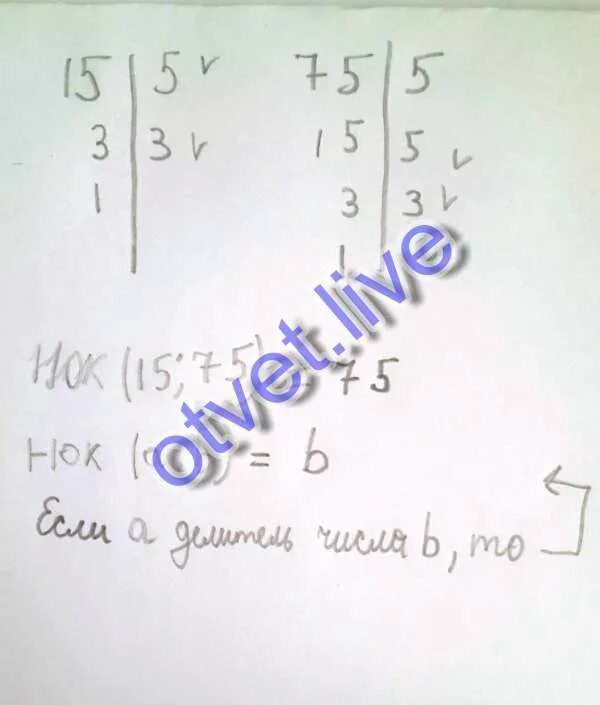 15 | 5 v 75 | 5
3 | 3 v 15 | 5 v
1 3 | 3 v
1
НОК (15; 75) 75
НОК ( ) = b
Если a делитель числа b, то
otvet.live